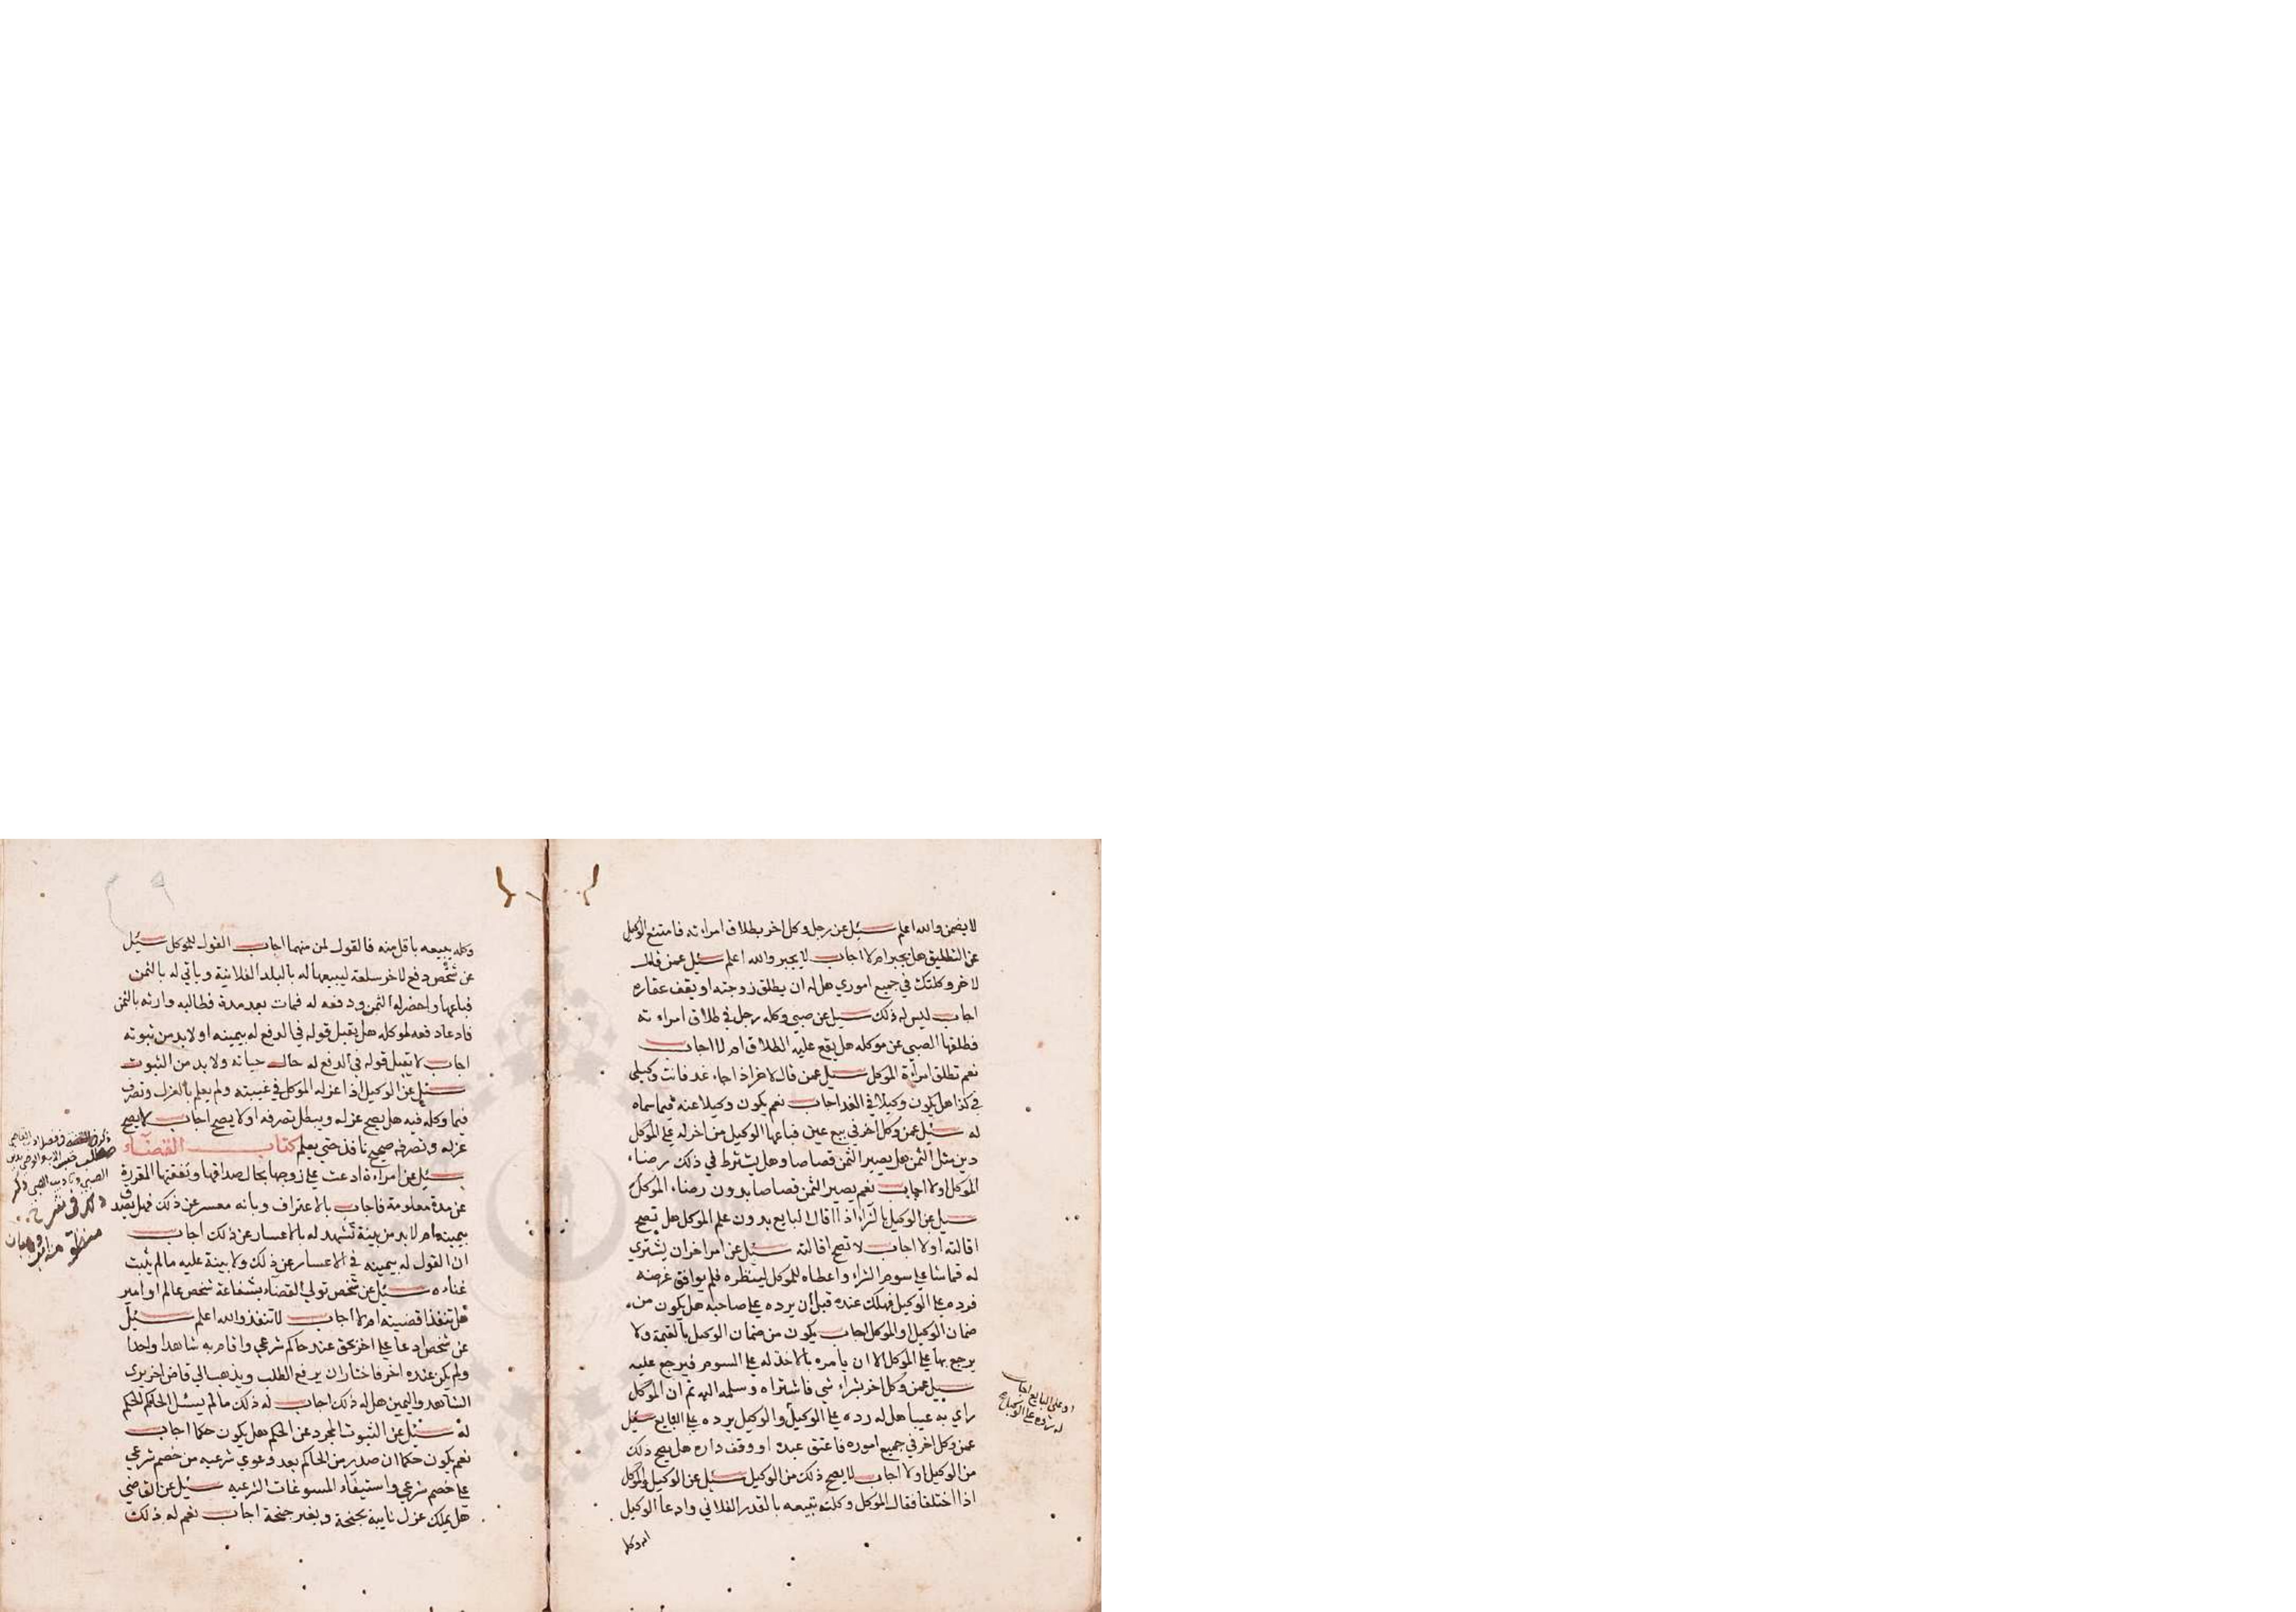 لا يضمن والله اعلم سئل عن رجل وكل اخر بطلاق امراته فامتنع الوكيل
عن التطليق هل يجبر ام لا اجاب لا يجبر والله اعلم سئل عمن قال
لاخر وكلتك في جميع اموري هل له ان يطلق زوجته او يقف عقاره
اجاب ليس له ذلك سئل عن صبي وكله رجل في طلاق امراته
فطلقها الصبي عن موكله هل يقع عليه الطلاق ام لا اجاب
نعم تطلق امرأة الموكل سئل عمن قال لاخر اذا جاء غد فانت وكيلي
في كذا هل يكون وكيلا في الغد اجاب نعم يكون وكيلا عنه فيما سماه
له سئل عمن وكل اخر في بيع عين فباعها الوكيل من اخر له على الموكل
دين مثل الثمن هل يصير الثمن قصاصا وهل يشترط في ذلك رضاء
الموكل اولا اجاب نعم يصير الثمن قصاصا بدون رضاء الموكل
سئل عن الوكيل بالشراء اذا اقال البايع بدون علم الموكل هل تصح
اقالته اولا اجاب لا تصح اقالته سئل عن امر اخر ان يشتري
له قماشا على سوم الشراء واعطاه للموكل لينظره فلم يوافق غرضه
فرده على الوكيل فهلك عنده قبل أن يرده على صاحبه هل يكون من
ضمان الوكيل او الموكل اجاب يكون من ضمان الوكيل بالقيمة ولا
يرجع بها على الموكل الا ان يامره بالاخذ له على السوم فيرجع عليه
سئل عمن وكل اخر بشراء شي فاشتراه وسلمه اليه ثم ان الموكل
راي به عيبا هل له رده على الوكيل والوكيل يرده على البايع سئل
او على البايع اجاب
له رده على الوكيل
عمن وكل اخر في جميع اموره فاعتق عبده او وقف داره هل يصح ذلك
من الوكيل اولا اجاب لا يصح ذلك من الوكيل سئل عن الوكيل والموكل
اذا اختلفا فقال الموكل وكلته تبيعه بالقدر الفلاني وادعا الوكيل
انه وكله
وكله يبيعه باقل منه فالقول لمن منهما اجاب القول للموكل سئل
عن شخص دفع لاخر سلعة ليبيعها له بالبلد الفلانية وياتي له بالثمن
فباعها واحضر له الثمن ودفعه له فمات بعد مدة فطالبه وارثه بالثمن
فادعا دفعه لموكله هل يقبل قوله في الدفع له بيمينه اولا بد من ثبوته
اجاب لا يقبل قوله في الدفع له حال حياته ولا بد من الثبوت
سئل عن الوكيل اذا عزله الموكل في غيبته ولم يعلم بالعزل وتصرف
فيما وكله فيه هل يصح عزله ويبطل تصرفه اولا يصح اجاب لا يصح
عزله وتصرفه صحيح نافذ حتى يعلم كتاب القضاء
سئل عن امراة ادعت على زوجها بحال صداقها ونفقتها المقررة
عن مدة معلومة فاجاب بالاعتراف وبانه معسر عن ذلك فهل يصدق
بيمينه ام لا بد من بينة تشهد له بالاعسار عن ذلك اجاب
ان القول له بيمينه في الاعسار عن ذلك ولا بينة عليه ما لم يثبت
غناءه سئل عن شخص تولي القضاء بشفاعة شخص عالم او امير
هل تنفذ اقضيته ام لا اجاب لا تنفذ والله اعلم سئل
عن شخص ادعا على اخر بحق عند حاكم شرعي واقام به شاهدا واحدا
ولم يكن عنده اخر فاختار ان يرفع الطلب ويذهب الي قاض اخر يرى
الشاهد واليمين هل له ذلك اجاب له ذلك ما لم يسئل الحاكم الحكم
له سئل عن الثبوت المجرد عن الحكم هل يكون حكما اجاب
نعم يكون حكما ان صدر من الحاكم بعد دعوي شرعيه من خصم شرعي
على خصم شرعي واستيفاء المسوغات الشرعيه سئل عن القاضي
هل يملك عزل نايبه بجنحة وبغير جنحة اجاب نعم له ذلك